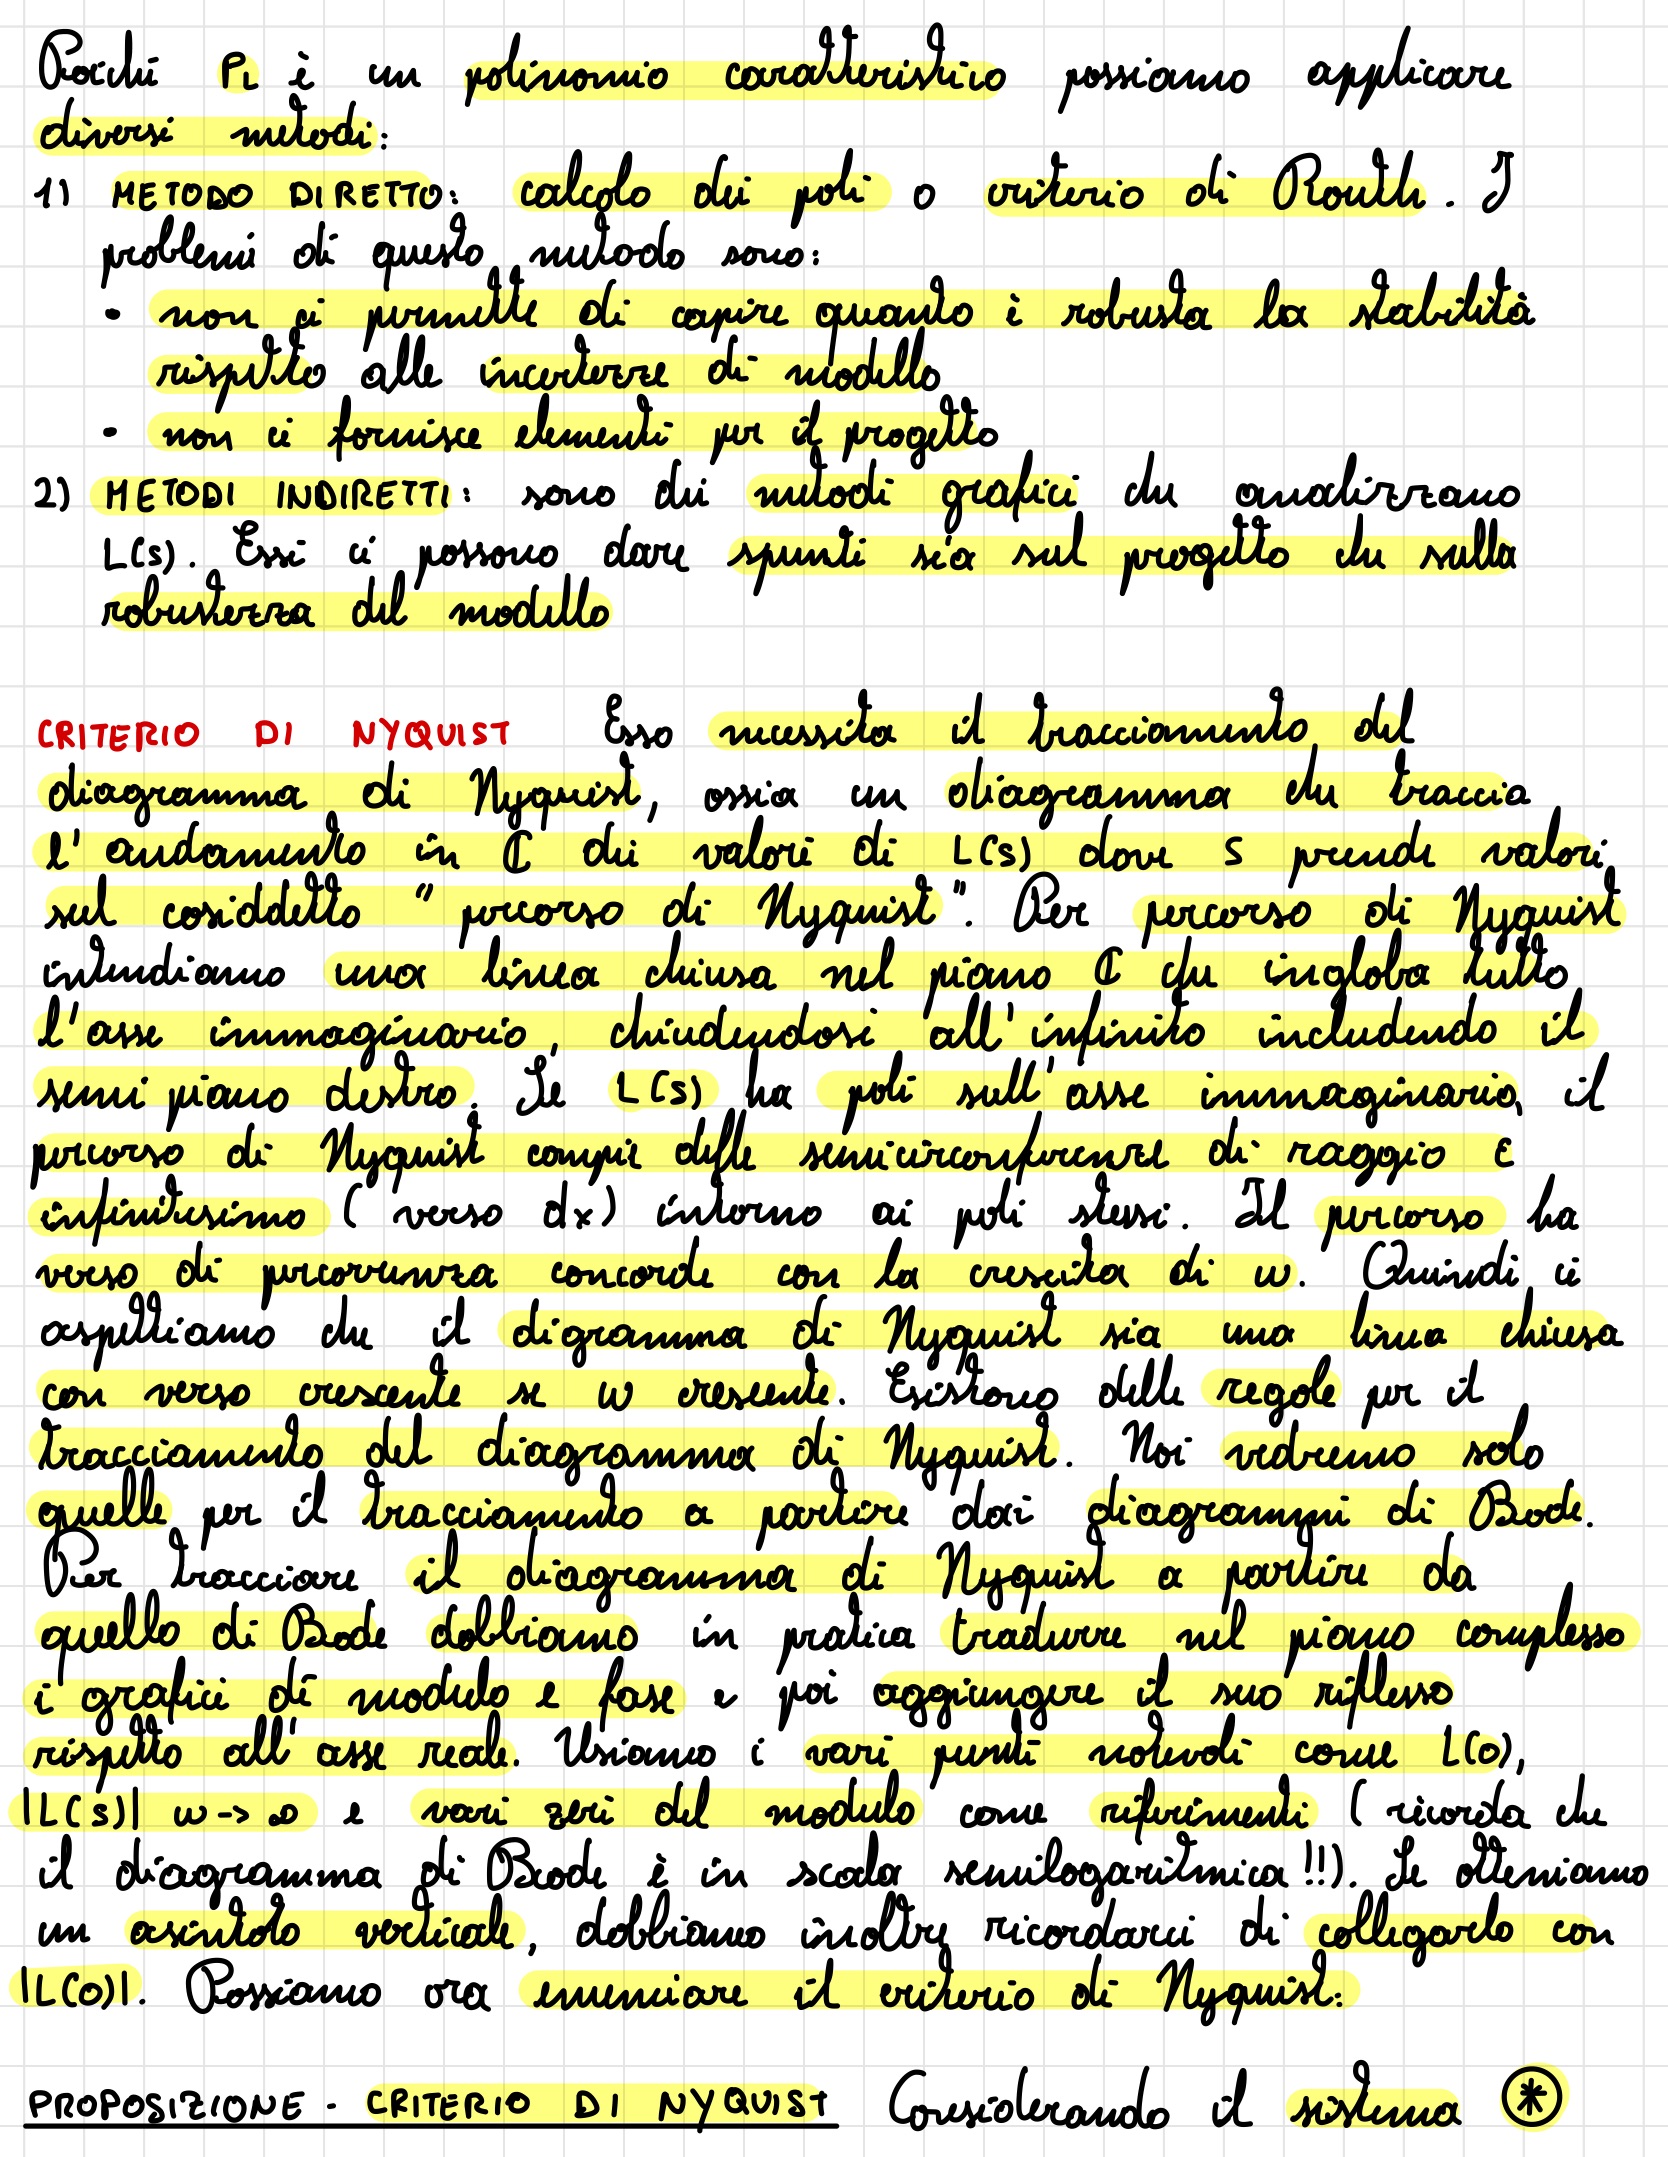 Poiché PL è un polinomio caratteristico possiamo applicare
diversi metodi:
1) METODO DIRETTO: calcolo dei poli o criterio di Routh. I
problemi di questo metodo sono:
• non ci permette di capire quanto è robusta la stabilità
rispetto alle incertezze di modello
• non ci fornisce elementi per il progetto
2) METODI INDIRETTI: sono dei metodi grafici che analizzano
L(s). Essi ci possono dare spunti sia sul progetto che sulla
robustezza del modello
CRITERIO DI NYQUIST Esso necessita il tracciamento del
diagramma di Nyquist, ossia un diagramma che traccia
l'andamento in ℂ dei valori di L(s) dove s prende valori
sul cosiddetto "percorso di Nyquist". Per percorso di Nyquist
intendiamo una linea chiusa nel piano ℂ che ingloba tutto
l'asse immaginario, chiudendosi all'infinito includendo il
semi piano destro. Se L(s) ha poli sull'asse immaginario, il
percorso di Nyquist compie delle semicirconferenze di raggio ε
infinitesimo (verso dx) intorno ai poli stessi. Il percorso ha
verso di percorrenza concorde con la crescita di w. Quindi ci
aspettiamo che il digramma di Nyquist sia una linea chiusa
con verso crescente se w crescente. Esistono delle regole per il
tracciamento del diagramma di Nyquist. Noi vedremo solo
quelle per il tracciamento a partire dai diagrammi di Bode.
Per tracciare il diagramma di Nyquist a partire da
quello di Bode dobbiamo in pratica tradurre nel piano complesso
i grafici di modulo e fase e poi aggiungere il suo riflesso
rispetto all'asse reale. Usiamo i vari punti notevoli come L(0),
|L(s)| w->∞ e vari zeri del modulo come riferimenti (ricorda che
il diagramma di Bode è in scala semilogaritmica!!). Se otteniamo
un asintoto verticale, dobbiamo inoltre ricordarci di collegarlo con
|L(0)|. Possiamo ora enunciare il criterio di Nyquist:
PROPOSIZIONE - CRITERIO DI NYQUIST Considerando il sistema ⊛